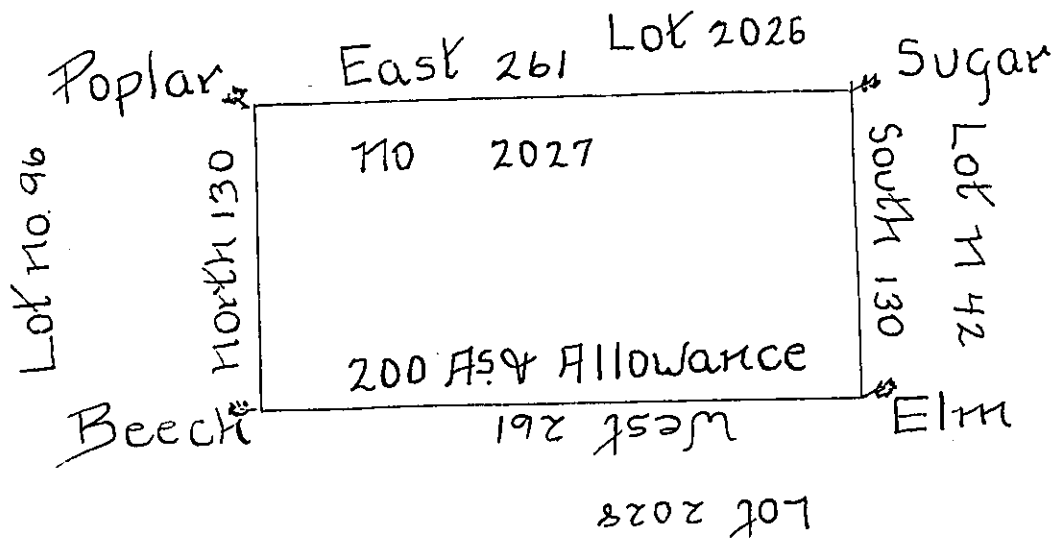 Lot 2026
Poplar East 261 Sugar
no 2027
Lot no. 96
North 130
South 130
Lot n 42
200 As & Allowance
Beech West 261 Elm
Lot 2028